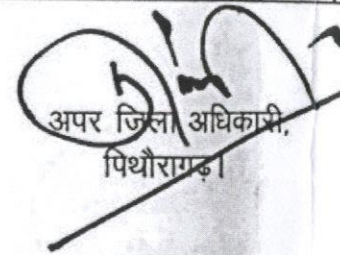 अपर जिला अधिकारी,
पिथौरागढ़।